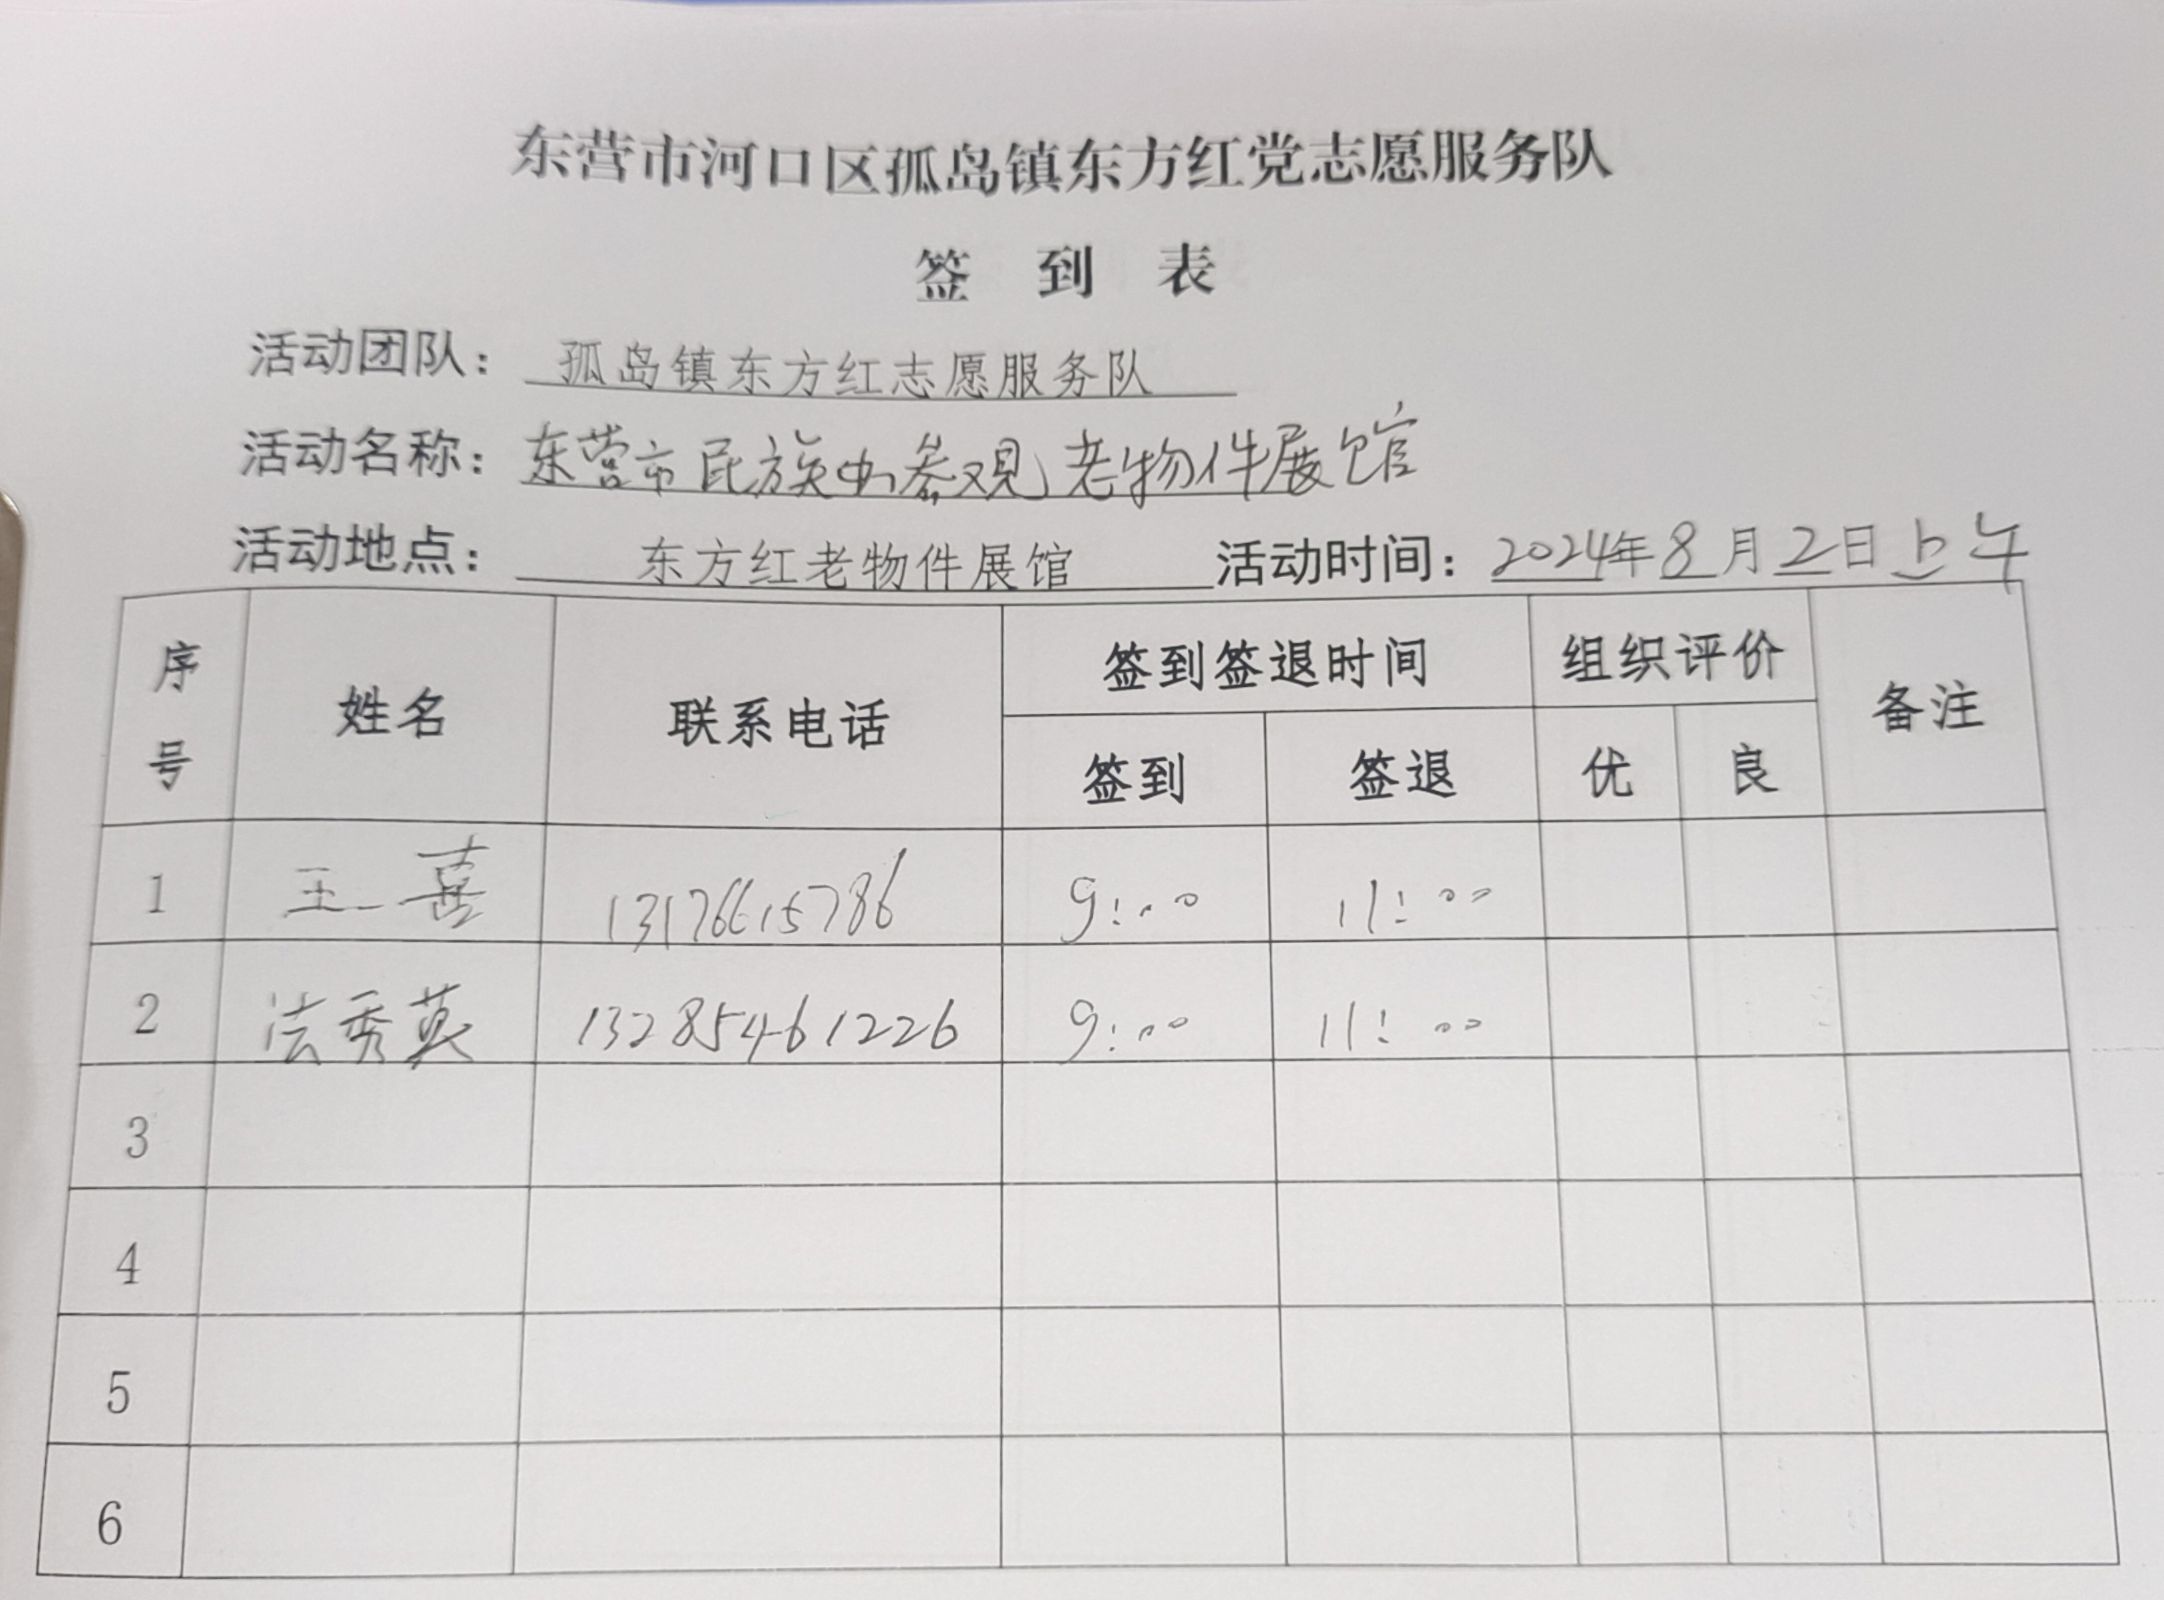 东营市河口区孤岛镇东方红党志愿服务队
签 到 表
活动团队： 孤岛镇东方红志愿服务队
活动名称：东营市民族 参观老物件展馆
活动地点： 东方红老物件展馆 活动时间：2024年8月2日上午
序号 姓名 联系电话 签到签退时间 组织评价 备注
签到 签退 优 良
1 王喜 13176615786 9:00 11:00
2 法秀英 13285461226 9:00 11:00
3
4
5
6